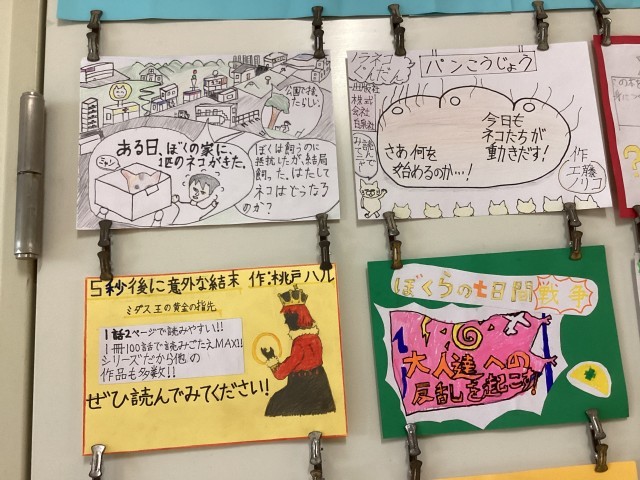 公園で拾っ
たらしい。
ある日、ぼくの家に、
1匹のネコがきた。
ニャン
ぼくは飼うのに
抵抗したが、結局
飼った。はたして
ネコはどうなる
のか?
ノラネコ
ぐんだん
パンこうじょう
出版社
株式
会社
白泉社
み
読んで
て
今日も
ネコたちが
動きだす!
さあ何を
始めるのか…!
作
工藤
ノリコ
5秒後に意外な結末 作:桃戸ハル
ミダス王の黄金の指先
1話2ページで読みやすい!!
1冊100話で読みごたえMAX!!
シリーズだから他の
作品も多数!!
ぜひ読んでみてください!
ぼくらの七日間戦争
大人達への
反乱を起こす!